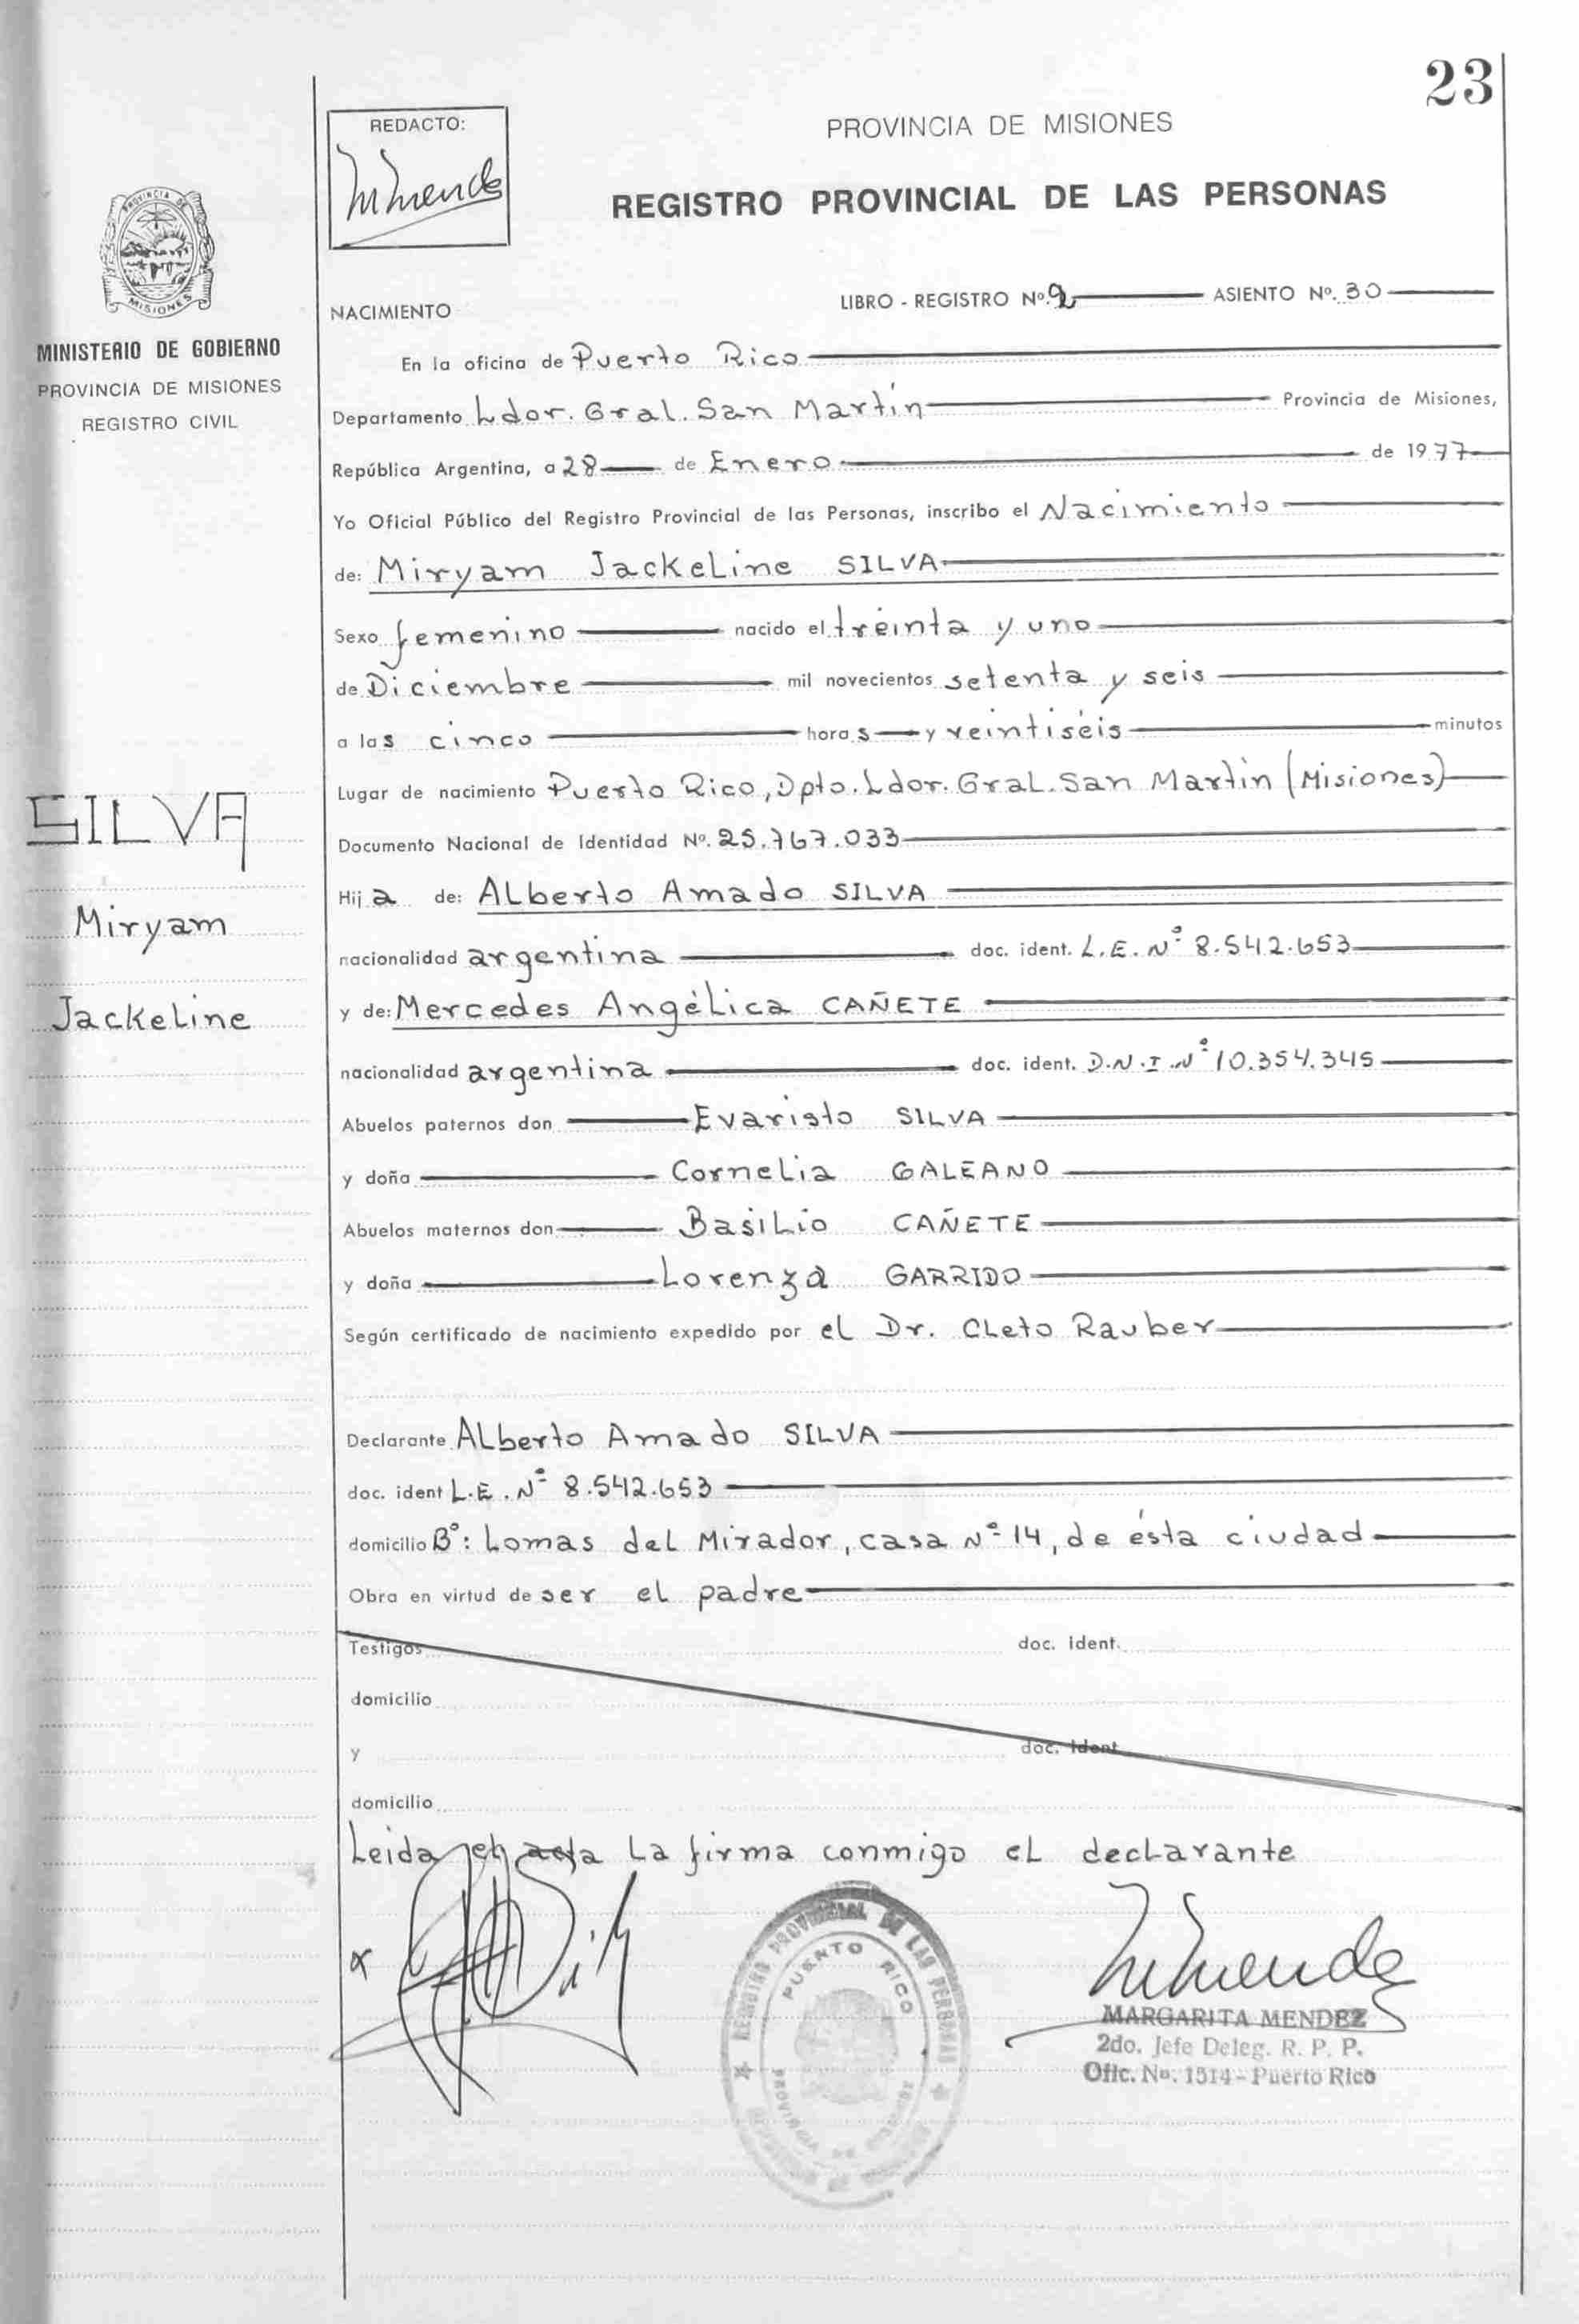 23
REDACTO:
PROVINCIA DE MISIONES
REGISTRO PROVINCIAL DE LAS PERSONAS
PROVINCIA DE
MISIONES
MINISTERIO DE GOBIERNO
PROVINCIA DE MISIONES
REGISTRO CIVIL
SILVA
Miryam
Jackeline
NACIMIENTO
LIBRO - REGISTRO Nº. 2 ASIENTO Nº. 30
En la oficina de Puerto Rico
Departamento Ldor. Gral. San Martín Provincia de Misiones,
República Argentina, a 28 de Enero de 1977
Yo Oficial Público del Registro Provincial de las Personas, inscribo el Nacimiento
de: Miryam Jackeline SILVA
Sexo femenino nacido el treinta y uno
de Diciembre mil novecientos setenta y seis
a las cinco horas y veintiséis minutos
Lugar de nacimiento Puerto Rico, Dpto. Ldor. Gral. San Martín (Misiones)
Documento Nacional de Identidad Nº. 25.767.033
Hija de: Alberto Amado SILVA
nacionalidad argentina doc. ident. L.E. Nº 8.542.653
y de: Mercedes Angélica CAÑETE
nacionalidad argentina doc. ident. D.N.I. Nº 10.354.345
Abuelos paternos don Evaristo SILVA
y doña Cornelia GALEANO
Abuelos maternos don Basilio CAÑETE
y doña Lorenza GARRIDO
Según certificado de nacimiento expedido por el Dr. Cleto Rauber
Declarante Alberto Amado SILVA
doc. ident L.E. Nº 8.542.653
domicilio Bº: Lomas del Mirador, casa Nº 14, de ésta ciudad
Obra en virtud de ser el padre
Testigos doc. ident.
domicilio
y doc. ident
domicilio
Leida el acta la firma conmigo el declarante
REGISTRO PROVINCIAL DE LAS PERSONAS
PUERTO RICO
PROVINCIA DE MISIONES
MARGARITA MENDEZ
2do. Jefe Deleg. R. P. P.
Ofic. Nº. 1514 - Puerto Rico